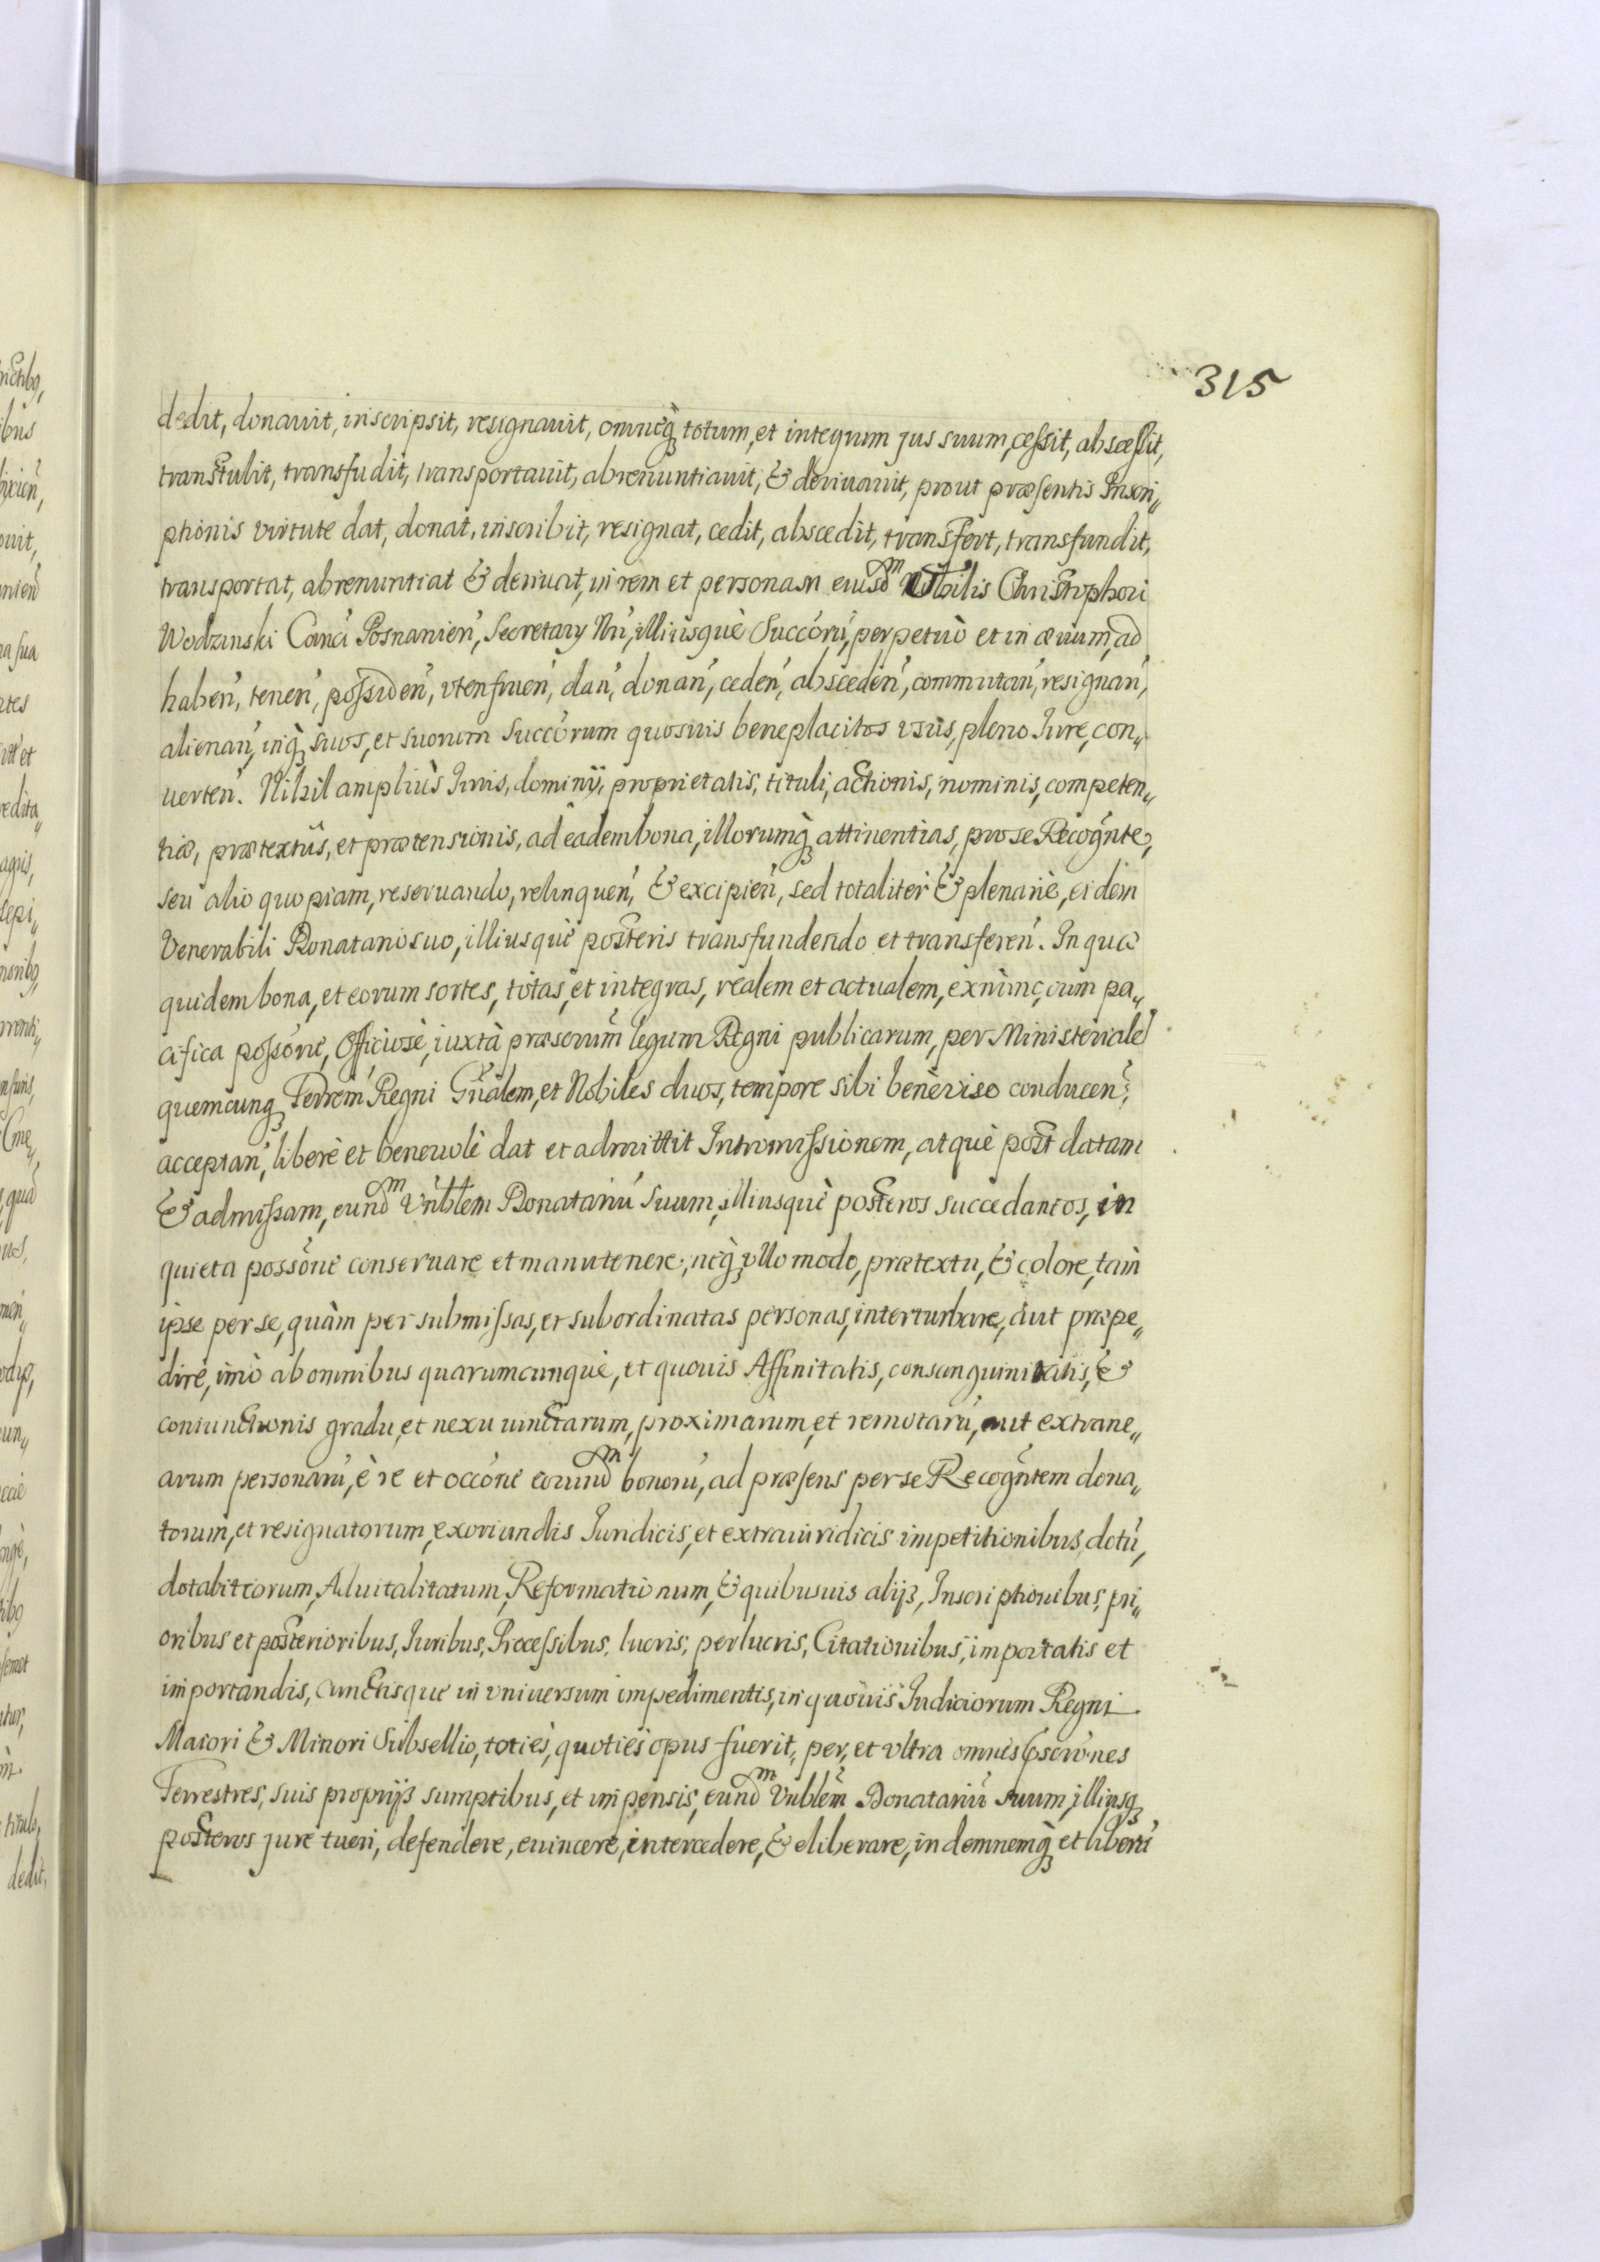 315
dedit, donauit, inscripsit, resignauit, omneq̀ȝ totum, et integrum jus suum, ceſsit, absceſsit,
transtulit, transfudit, transportauit, abrenuntiauit, & deriuauit, prout præsentis Inscri„
ptionis virtute dat, donat, inscribit, resignat, cedit, abscedit, transfert, transfundit,
transportat, abrenuntiat & deriuat, in rem et personam eiusdm Nobilis Christophori
Wodzinski Canci Posnanień, Secretary Nri, illiusquè Succorú, perpetuò et in æuum, ad
habeń, teneń, poſsideń, vtenfrueń, dań, donań, cedeń, abscedeń, commutań, resignań,
alienań, inq̀ȝ suos, et suorum Succórum quosuis beneplacitos vsùs, pleno Iure, con„
uerteń. Nihil ampliùs Iuris, dominij, proprietatis, tituli, actionis, nominis, competen„
tiæ, prætextûs, et prætensionis, ad eadem bona, illorumq̀ȝ attinentias, pro se Recogńte,
seu alio quopiam, reseruando, relinqueń, & excipień, sed totalitèr & plenariè, eidem
Venerabili Donatario suo, illiusquè posteris transfundendo et transfereń. In quæ
quidem bona, et eorum sortes, totas, et integras, realem et actualem, exnùnc, cum pa„
cifica poſsóne, Officiosè, iuxtà præscrúm legum Regni publicarum, per Ministeriale
quemcunqȝ Terrem̃ Regni Gñalem, et Nobiles duos, tempore sibi benèviso conduceń,
acceptań, liberè et beneuolè dat et admittit Intromiſsionem, atquè post datam
& admiſsam, eundm Vnblem Donatariú suum, illiusquè posteros succedaneos, in
quieta possóne conseruare et manutenere; neq̀ȝ vllo modo, prætextu, & colore, tàm
ipse per se, quàm per submiſsas, et subordinatas personas, interturbare, aut præpe„
dire, imò ab omnibus quarumcunquè, et quouis Affinitatis, consanguinitatis, &
coniunctionis gradu, et nexu uinctarum, proximarum, et remotarú, aut extrane„
arum personarú, è re et occóne eorundm bonorú, ad præsens per se Recogńtem dona„
torum, et resignatorum, exoriundis Iuridicis, et extraiuridicis impetitionibus, dotú,
dotalitiorum, Aduitalitatum, Reformationum, & quibusuis alijs, Inscriptionibus, pri„
oribus et posterioribus, Iuribus, Proceſsibus, lucris, perlucris, Citationibus, importatis et
importandis, cunctisque in vniuersum impedimentis, in quouis Iudiciorum Regni
Maiori & Minori Subsellio, toties, quoties opus fuerit, per, et vltra omnes pscrónes
Terrestres, suis proprijs sumptibus, et impensis, eundm Vnblem̃ Donatariú suum, illiusqȝ
posteros jure tueri, defendere, euincere, intercedere, & eliberare, indemnemq̀ȝ et liberú